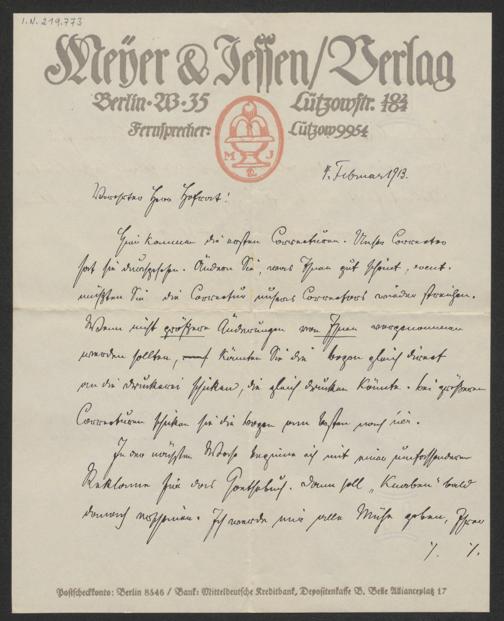 I.N. 219.773
Meyer & Jessen / Verlag
Berlin · W · 35 Lützowstr. 484
Fernsprecher: Lützow 9954
M J
4. Februar 1913.
Verehrter Herr Hofrat!
Hier kommen die ersten Correcturen. Unser Corrector
hat sie durchgesehen. Ändern Sie, was Ihnen gut scheint, event.
müßten Sie die Correctur unseres Correctors wieder streichen.
Wenn nicht größere Änderungen von Ihnen vorgenommen
werden sollten, könnten Sie die Bogen gleich direct
an die Druckerei schicken, die gleich drucken könnte. Bei größeren
Correcturen schicken Sie die Bogen am besten nach hier.
In der nächsten Woche beginne ich mit einer umfassenderen
Reklame für das Goethebuch. Dann soll „Knaben" bald
danach erscheinen. Ich werde mir alle Mühe geben, Ihren
·/. ·/.
Postscheckkonto: Berlin 8546 / Bank: Mitteldeutsche Kreditbank, Depositenkasse B. Belle Allianceplatz 17